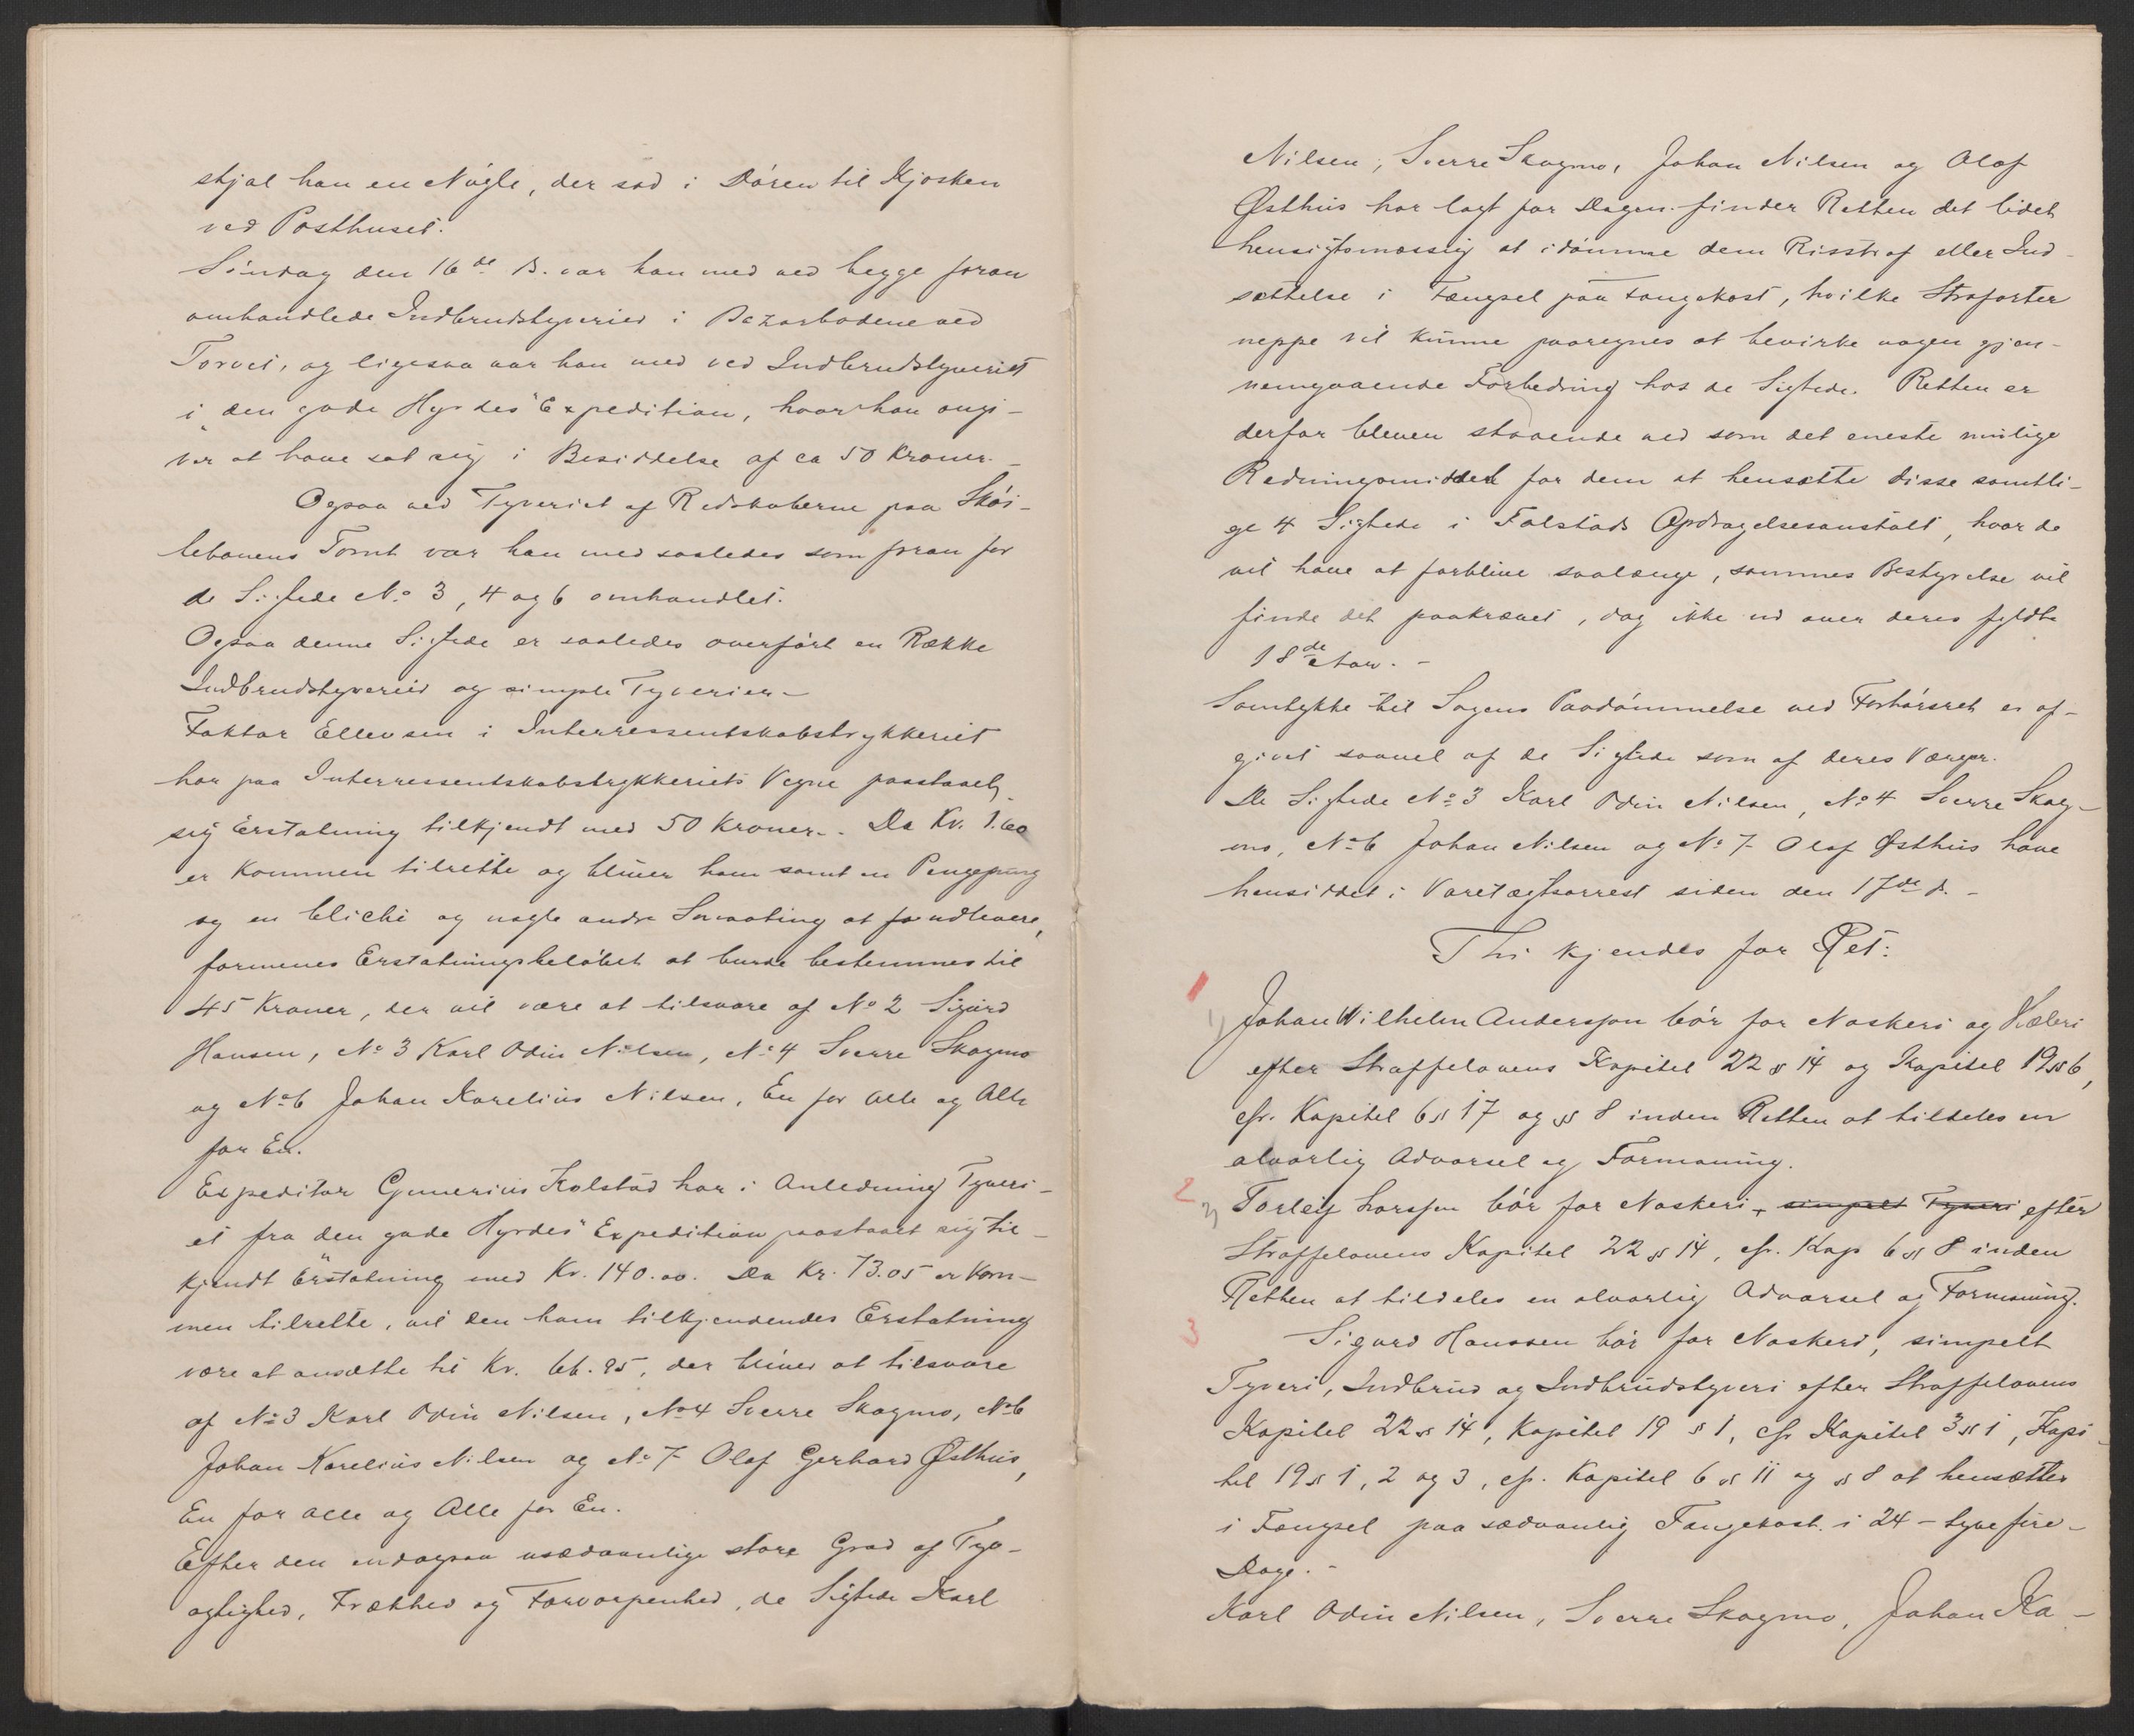 stjal han en Nøgle, der sad i Døren til Kjosken
ved Posthuset.
Søndag den 16de ds. var han med ved begge foran
omhandlede Indbrudstyverier i Bazarbodene ved
Torvet, og ligesaa var han med ved Indbrudstyveriet
i "den gode Hyrdes" Expedition, hvor han angi-
ver at have sat sig i Besiddelse af ca 50 Kroner. -
Ogsaa ved Tyveriet af Redskaberne paa Skøi-
tebanens Tomt var han med saaledes som foran for
de Sigtede No 3, 4 og 6 omhandlet.
Ogsaa denne Sigtede er saaledes overført en Række
Indbrudstyverier og simple Tyverier -
Faktor Ellevsen i Interressentskabstrykkeriet
har paa Interressentskabstrykkeriets Vegne paastaaet
sig Erstatning tilkjendt med 50 Kroner. - Da Kr. 1.60
er kommen tilrette og bliver ham samt en Pengepung
og en cliché og nogle andre Smaating at faa udlevere,
formenes Erstatningsbeløbet at burde bestemmes til
45 Kroner, der vil være at tilsvare af No 2 Sigurd
Hansen, No 3 Karl Odin Nilsen, No 4 Sverre Skogmo
og No 6 Johan Karelius Nilsen, En for alle og Alle
for En.
Expeditør Gunerius Kolstad har i Anledning Tyveri-
et fra "den gode Hyrdes" Expedition paastaaet sig til-
kjendt Erstatning med Kr. 140.00. Da Kr. 73.05 er kom-
men tilrette, vil den ham tilkjendendes Erstatning
være at ansætte til Kr. 66.95, der bliver at tilsvare
af No 3 Karl Odin Nilsen, No 4 Sverre Skogmo, No 6
Johan Karelius Nilsen og No 7 Olaf Gerhard Østhus,
En for alle og Alle for En.
Efter den endogsaa usædvanlige store Grad af Tyv-
agtighed, Frækhed og Forvorpenhed, de Sigtede Karl
Nilsen, Sverre Skogmo, Johan Nilsen og Olaf
Østhus har lagt for Dagen finder Retten det lidet
hensigtsmæssig at idømme dem Risstraf eller Ind-
sættelse i Fængsel paa Fangekost, hvilke Strafarter
neppe vil kunne paaregnes at bevirke nogen gjen-
nemgaaende Forbedring hos de Sigtede. Retten er
derfor bleven staaende ved som det eneste mulige
Redningsmiddel for dem at hensætte disse samtli-
ge 4 Sigtede i Falstads Opdragelsesanstalt, hvor de
vil have at forblive saalænge, sammes Bestyrelse vil
finde det paakrævet, dog ikke ud over deres fyldte
18de Aar. -
Samtykke til Sagens Paadømmelse ved Forhørsret er af-
givet saavel af de Sigtede som af deres Værger.
De Sigtede No 3 Karl Odin Nilsen, No 4 Sverre Skog-
mo, No 6 Johan Nilsen og No 7 Olaf Østhus have
hensiddet i Varetægtsarrest siden den 17de ds. -
Thi kjendes for Ret:
1
1) Johan Wilhelm Anderssen bør for Naskeri og Hæleri
efter Straffelovens Kapitel 22 § 14 og Kapitel 19 § 6,
cfr. Kapitel 6 § 17 og § 8 inden Retten at tildeles en
alvorlig Advarsel og Formaning.
2
2) Torleif Larssen bør for Naskeri, simpelt Tyveri efter
Straffelovens Kapitel 22 § 14, cfr. Kap 6 § 8 inden
Retten at tildeles en alvorlig Advarsel og Formaning.
3
Sigurd Hanssen bør for Naskeri, simpelt
Tyveri, Indbrud og Indbrudstyveri efter Straffelovens
Kapitel 22 § 14, Kapitel 19 § 1, cfr Kapitel 3 § 1, Kapi-
tel 19 § 1, 2 og 3, cfr. Kapitel 6 § 11 og § 8 at hensættes
i Fængsel paa sædvanlig Fangekost i 24 - tyvefire -
Dage. -
Karl Odin Nilsen, Sverre Skogmo, Johan Ka-